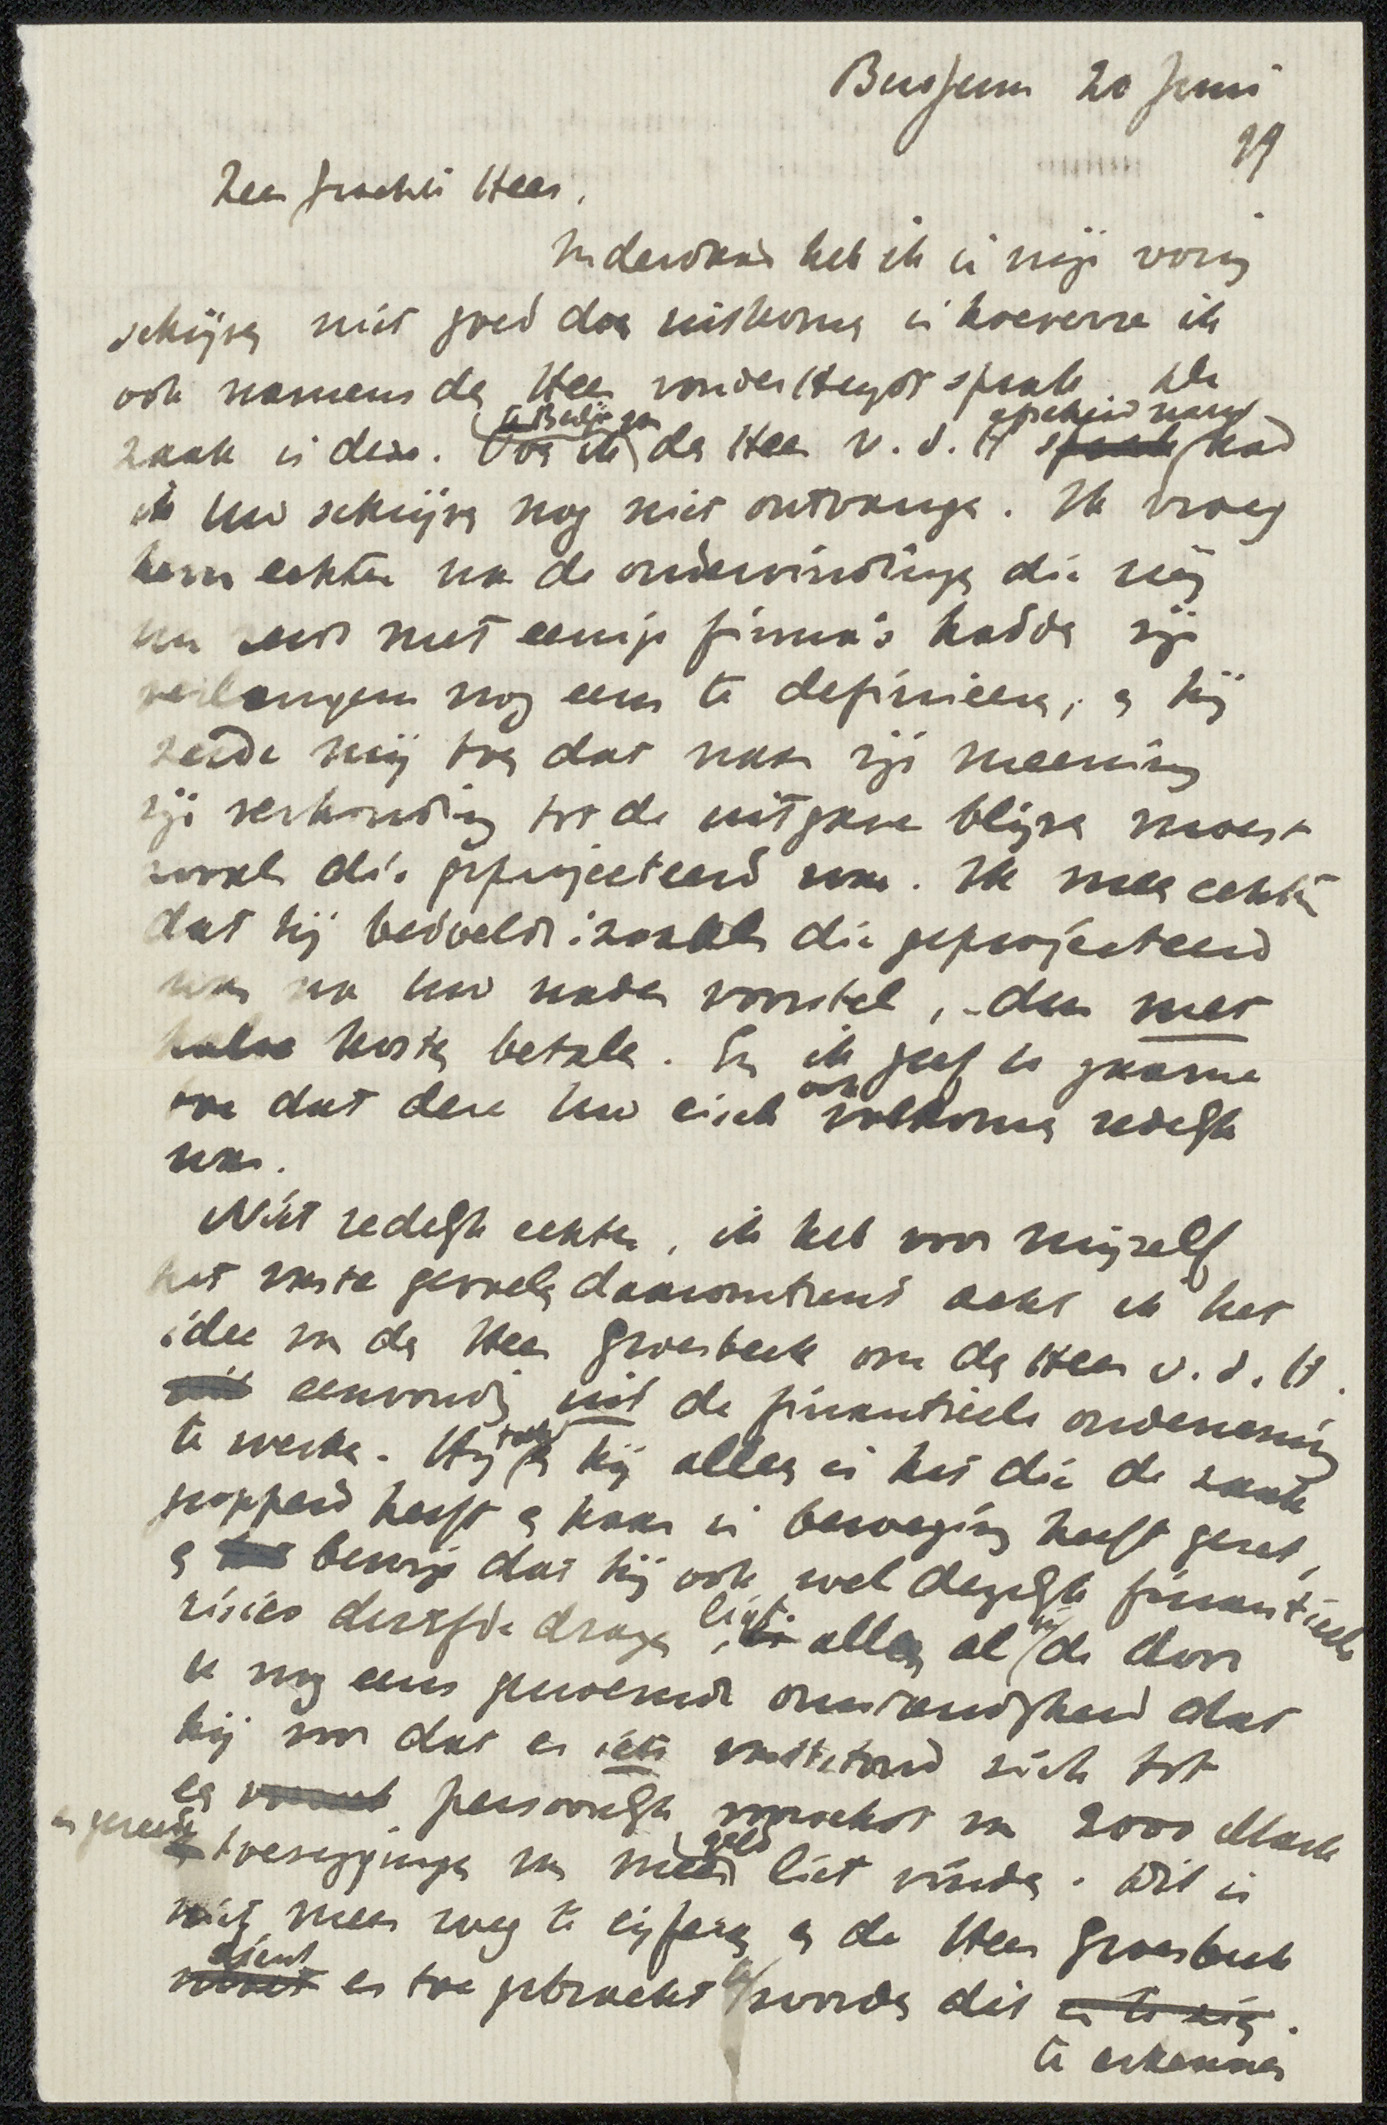 Bussum 20 Juni
99
Zeer geachte Heer,
Inderdaad heb ik in mijn vorig
schrijven niet goed doen uitkomen in hoeverre ik
ook namens den Heer von der Heydt sprak. De
zaak is deze. Toen ik te Berlijn van den Heer v. d. H afscheid nam had
ik Uw schrijven nog niet ontvangen. Ik vroeg
hem echter na de ondervindingen die wij
nu eens met eenige firma's hadden zijn
verlangens nog eens te definieeren, en hij
zeide mij toen dat naar zijn meening
zijn verhouding tot de uitgave blijven moest
zooals die geprojecteerd was. Ik meen echter
dat hij bedoelde: zooals die geprojecteerd
was na Uw nader voorstel, dus met
halve kosten betalen. En ik geef U gaarne
toe dat deze Uw eisch ook volkomen redelijk
was.
Niet redelijk echter, ik heb voor mijzelf
het vaste gevoelen daaromtrent acht ik het
idee van den Heer Groesbeek om den Heer v. d. H.
eenvoudig uit de financieele onderneming
te werken. Hij toch is hij alleen is het die de zaak
geopperd heeft en haar in beweging heeft gezet,
en bewijs dat hij ook wel degelijk financieele
risico durfde dragen ligt alleen al in de door
U nog eens genoemde omstandigheid dat
hij voor dat er iets vaststond zich tot
een persoonlijk voorschot van 2000 Mark
en gereede toezeggingen van meer geld liet vinden. Dit is
niet meer weg te cijferen en de Heer Groesbeek
dient er toe gebracht te worden dit
te erkennen